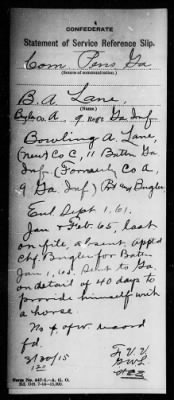 CONFEDERATE
Statement of Service Reference Slip.
Com Pens Ga
(Source of communication.)
B. A. Lane,
Bugler Co. A, 9 Regt Ga Inf
Bowling A. Lane,
(new) Co C, 11 Battn Ga
Inf. (Formerly Co A,
9 Ga Inf) Pvt and Bugler
Enl Sept 1, 61.
Jan & Feb 65, last
on file, absent, app'd
Chf. Bugler for Battn
Jan 1, 65. Sent to Ga.
on detail of 40 days to
provide himself with
a horse.
No f. of w. record
fd.
3/20/15
Form No. 647-1—A. G. O.